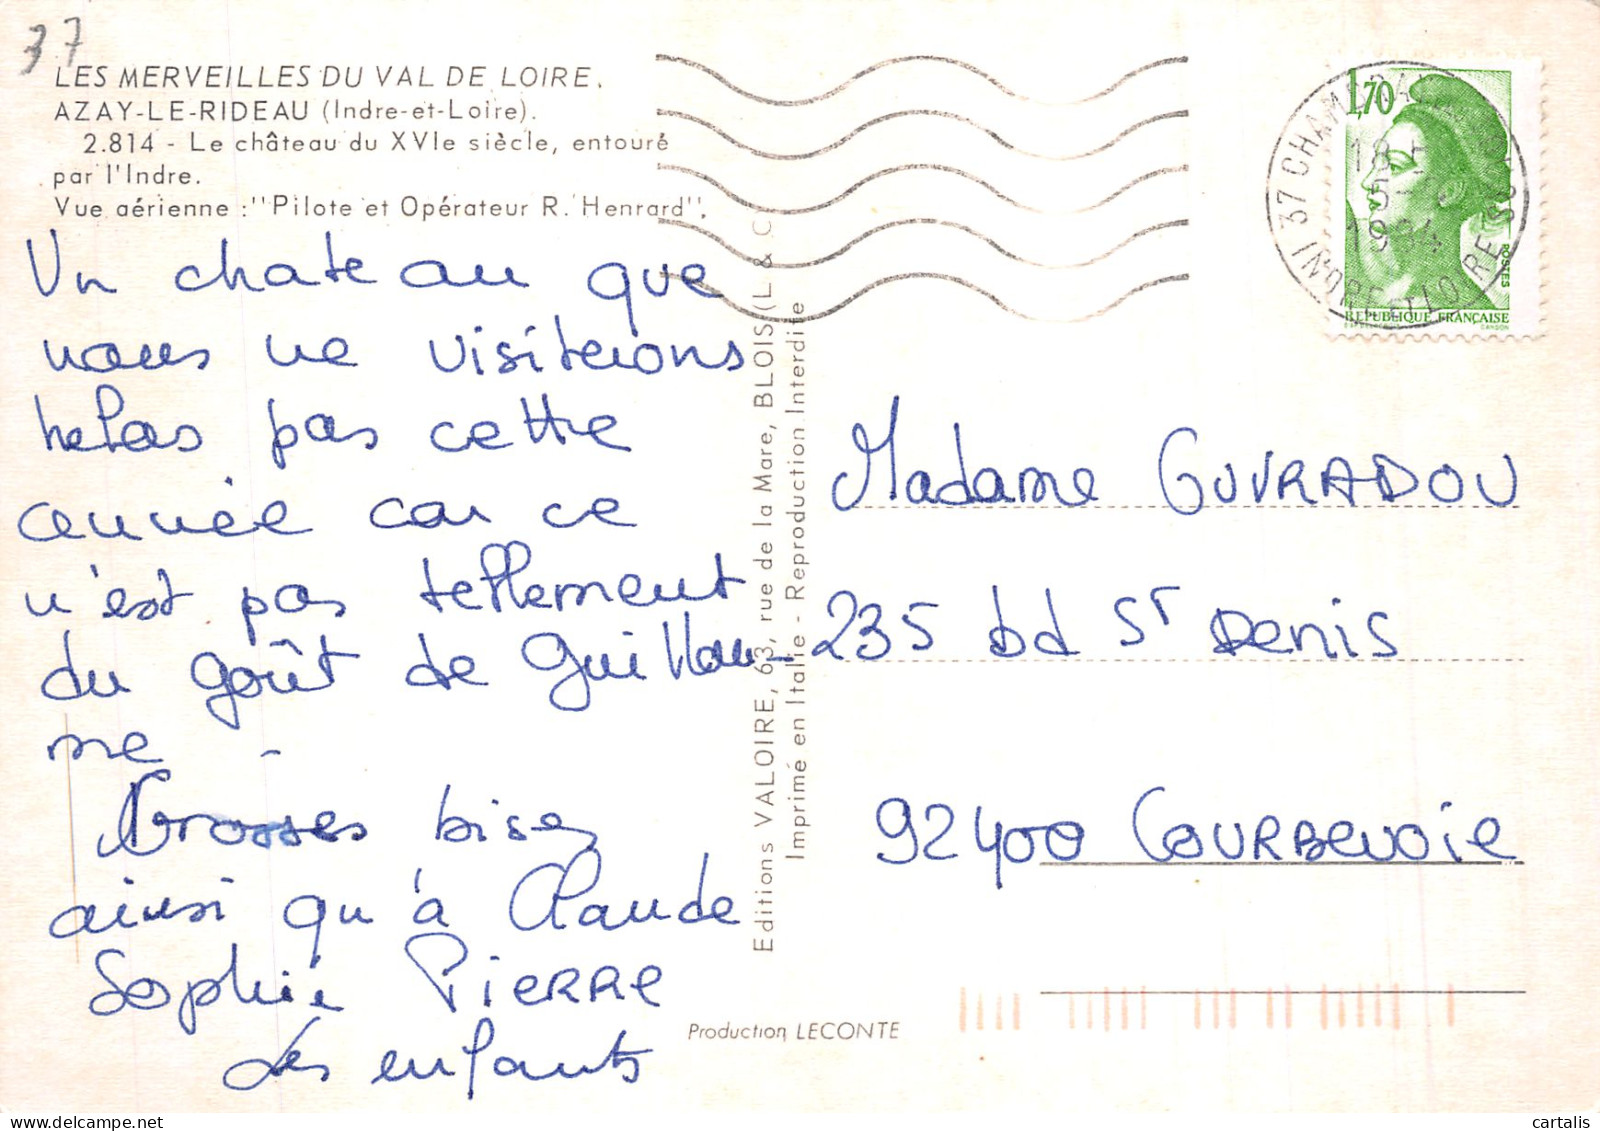 37
LES MERVEILLES DU VAL DE LOIRE.
AZAY-LE-RIDEAU (Indre-et-Loire).
2.814 - Le château du XVIe siècle, entouré
par l'Indre.
Vue aérienne : "Pilote et Opérateur R. Henrard".
Un chateau que
nous ne visiterons
helas pas cette
année car ce
n'est pas tellement
du goût de Guillau-
me -
Grosses bises
ainsi qu'à Claude
Sophie Pierre
Les enfants
Editions VALOIRE, 63, rue de la Mare, BLOIS (L & C)
Imprimé en Italie - Reproduction Interdite
Production LECONTE
1,70
POSTES
REPUBLIQUE FRANÇAISE
GANDON
37 CHAM
18
5
1984
INDRE ET LOIRE
Madame GUVRADOU
235 bd St Denis
92400 COURBEVOIE
cartalis